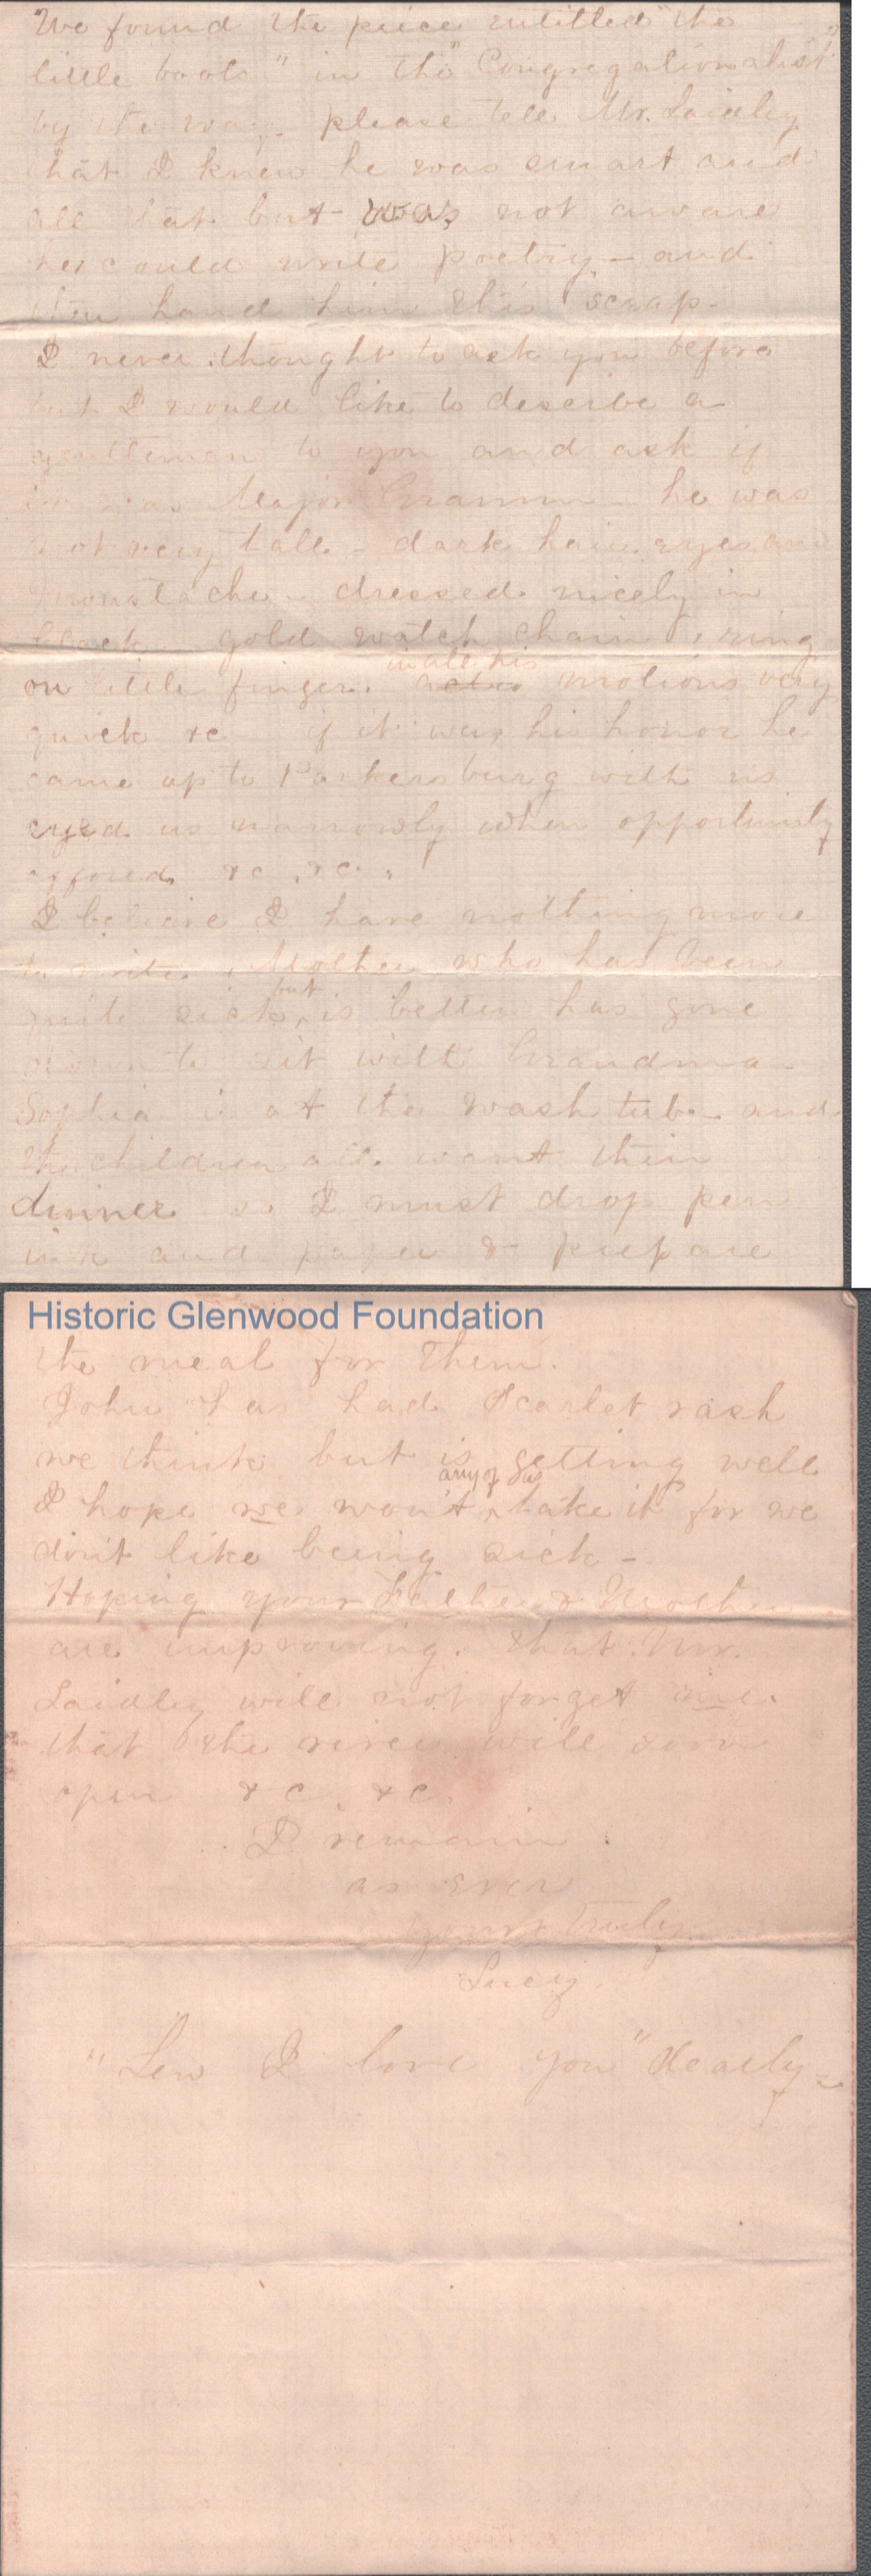 We found the piece entitled "the
little boots" in the "Congregationalist"
by the way. please tell Mr. Laidley
that I knew he was smart and
all that but was not aware
he could write poetry - and
then hand him this scrap -
I never thought to ask you before
but I would like to describe a
gentleman to you and ask if
it was Major - he was
not very tall - dark hair, eyes and
moustache - dressed nicely in
black - gold watch chain, ring
on little finger. in all his motions very
quick &c if it was his honor he
came up to Parkersburg with us
eyed us narrowly when opportunity
offored &c, &c.
I believe I have nothing more
to write. Mother who has been
quite sick, but is better has gone
down to sit with Grandma -
Sophia is at the wash tub - and
the children all want their
dinner so I must drop pen
ink and paper & prepare
Historic Glenwood Foundation
the meal for them.
John has had Scarlet rash
we think but is getting well
I hope we won't any of us take it for we
don't like being sick -
Hoping your Father & Mother
are improving. that Mr.
Laidley will not forget me.
that the river will soon
open &c. &c.
I remain
as ever
yours Truly
Lucy.
"Lew I love you" dearly -